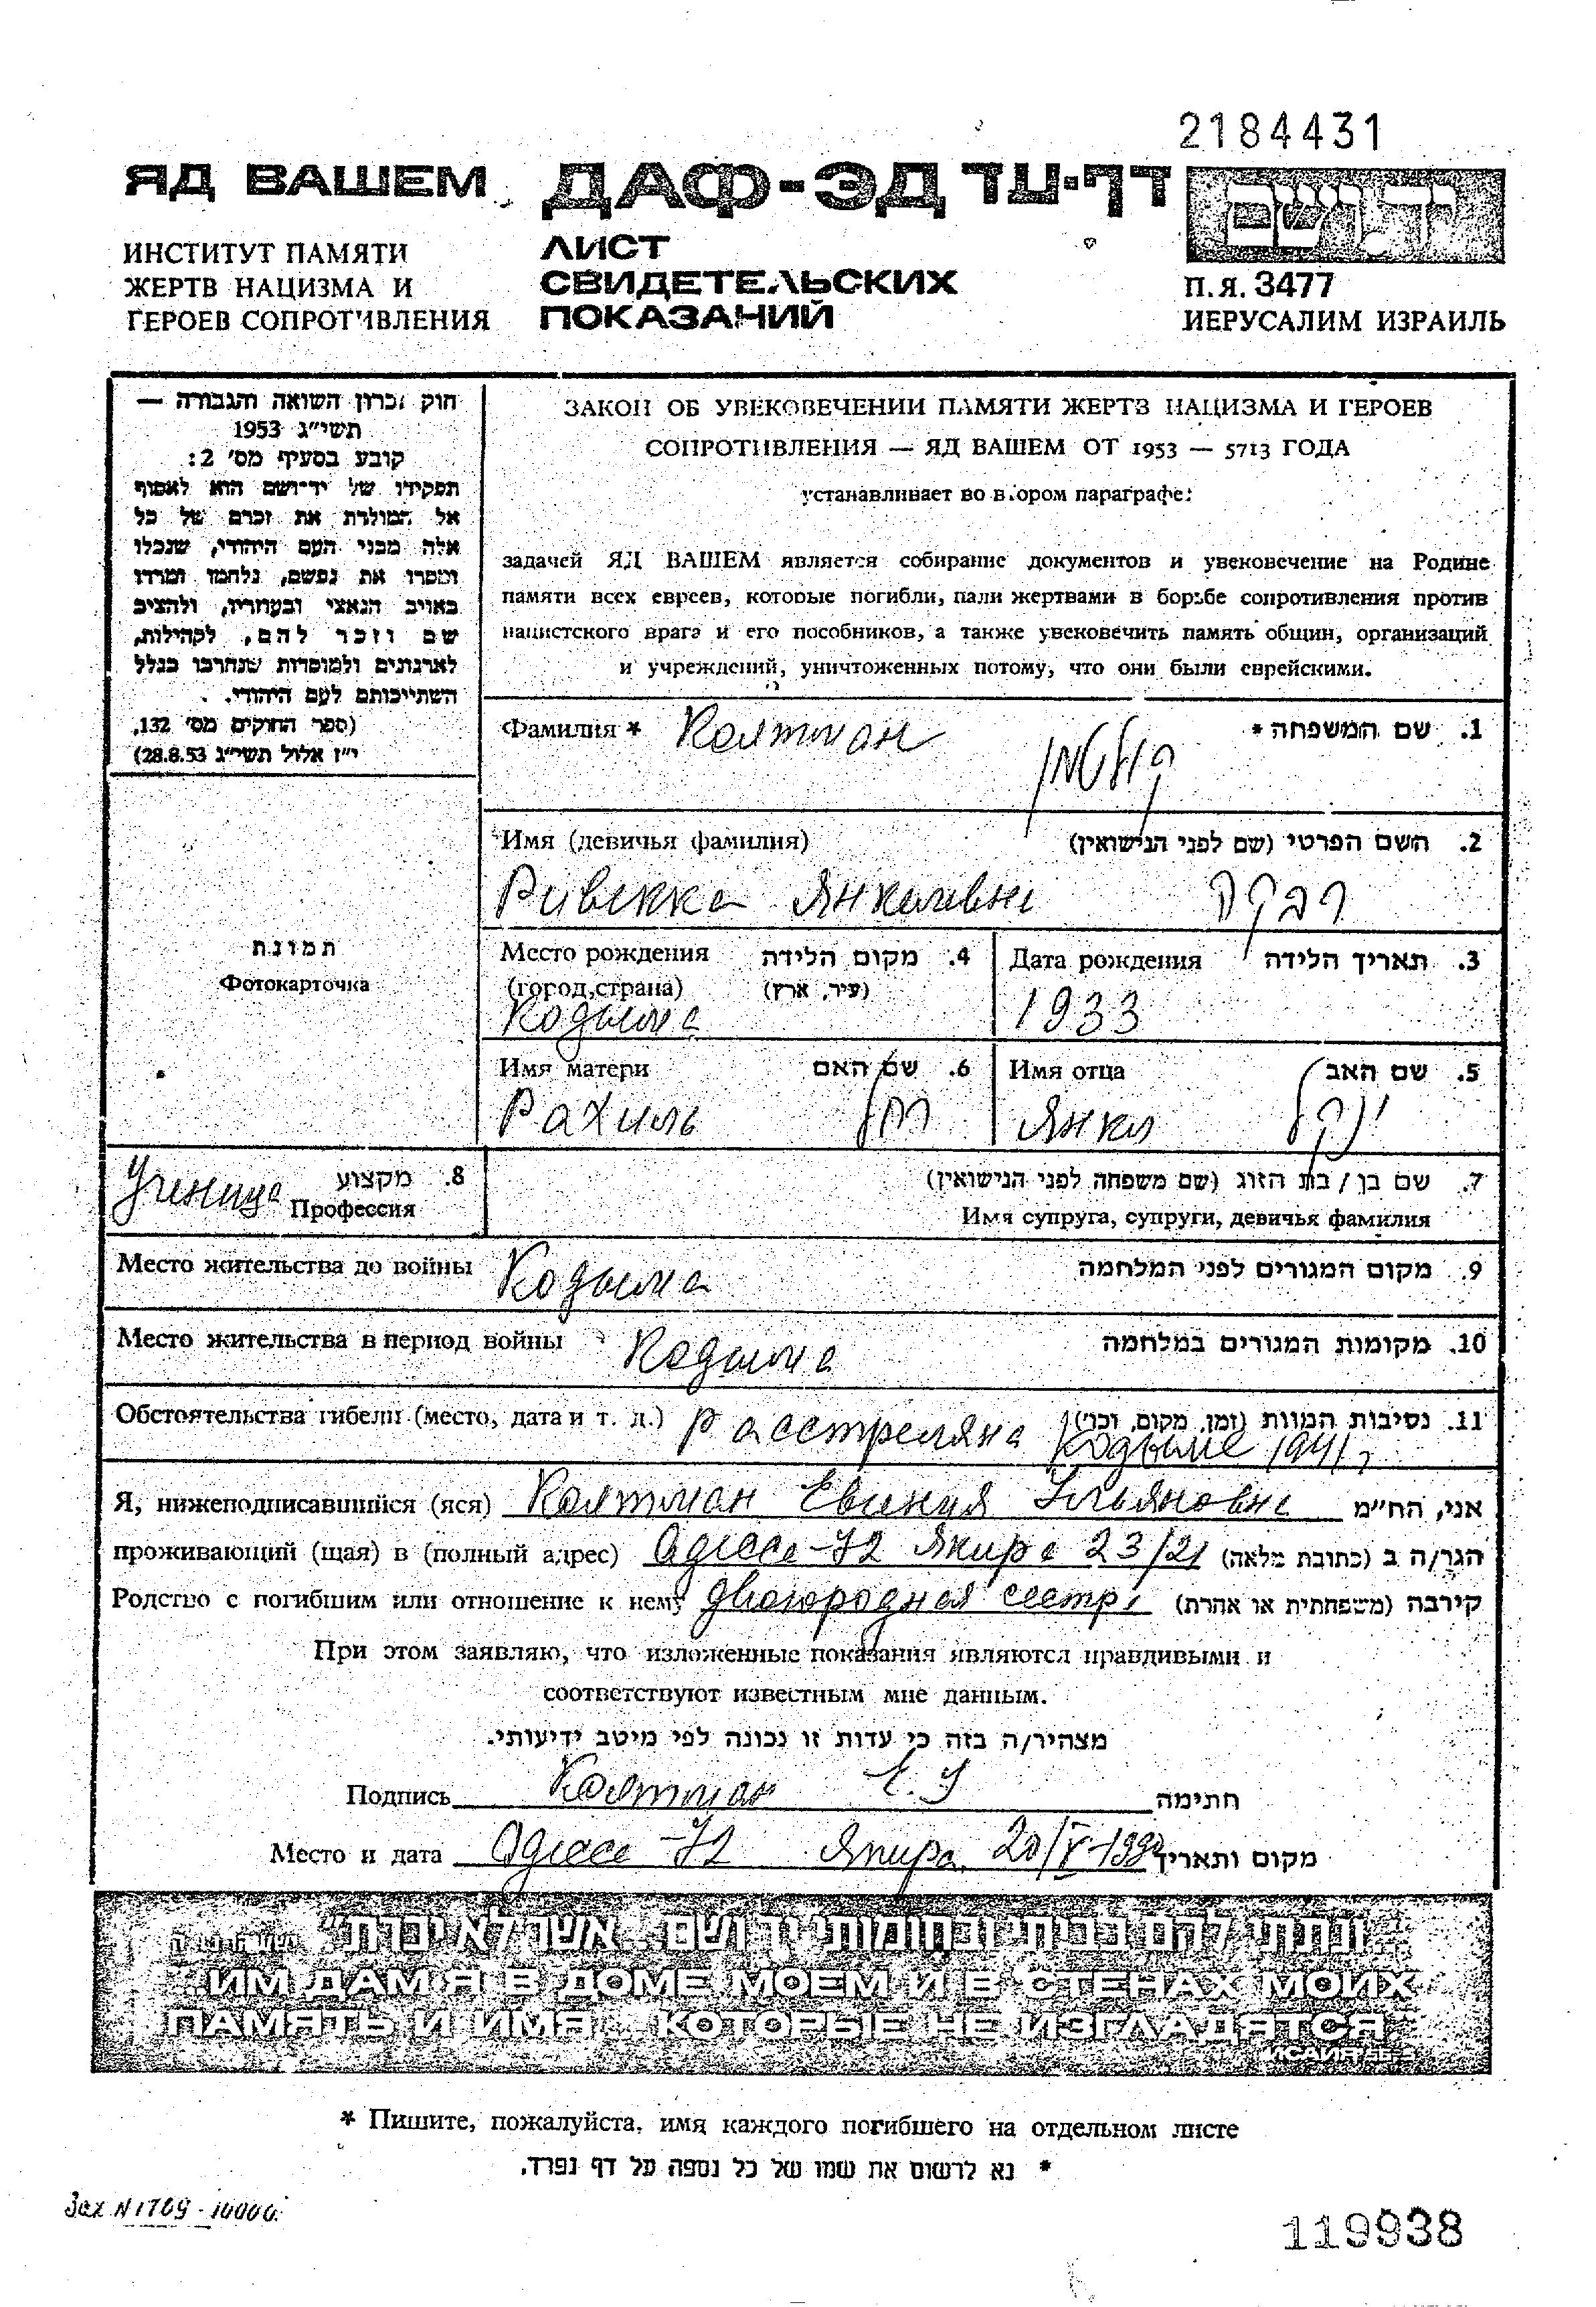 2184431
ЯД ВАШЕМ ДАФ-ЭД דף-עד
יד ושם
ИНСТИТУТ ПАМЯТИ
ЖЕРТВ НАЦИЗМА И
ГЕРОЕВ СОПРОТИВЛЕНИЯ
ЛИСТ
СВИДЕТЕЛЬСКИХ
ПОКАЗАНИЙ
П.Я. 3477
ИЕРУСАЛИМ ИЗРАИЛЬ
חוק זכרון השואה והגבורה —
תשי״ג 1953
קובע בסעיף מס׳ 2:
תפקידו של יד־ושם הוא לאסוף
אל המולדת את זכרם של כל
אלה מבני העם היהודי, שנפלו
ומסרו את נפשם, נלחמו ומרדו
באויב הנאצי ובעוזריו, ולהציב
שם וזכר להם, לקהילות,
לארגונים ולמוסדות שנחרבו בגלל
השתייכותם לעם היהודי.
(ספר החוקים מס׳ 132,
י״ז אלול תשי״ג 28.8.53)
ЗАКОН ОБ УВЕКОВЕЧЕНИИ ПАМЯТИ ЖЕРТВ НАЦИЗМА И ГЕРОЕВ
СОПРОТИВЛЕНИЯ — ЯД ВАШЕМ ОТ 1953 — 5713 ГОДА
устанавливает во втором параграфе:
задачей ЯД ВАШЕМ является собирание документов и увековечение на Родине
памяти всех евреев, которые погибли, пали жертвами в борьбе сопротивления против
нацистского врага и его пособников, а также увековечить память общин, организаций
и учреждений, уничтоженных потому, что они были еврейскими.
Фамилия * Колтман 1. שם המשפחה *
קולטמן
Имя (девичья фамилия) 2. השם הפרטי (שם לפני הנישואין)
Ривекка Янкелевна רבקה
Место рождения 4. מקום הלידה
(город, страна) (עיר, ארץ)
Кодыма
Дата рождения 3. תאריך הלידה
1933
Имя матери 6. שם האם
Рахиль רחל
Имя отца 5. שם האב
Янкл ינקל
תמונת
Фотокарточка
Ученица 8. מקצוע
Профессия
7. שם בן / בת הזוג (שם משפחה לפני הנישואין)
Имя супруга, супруги, девичья фамилия
Место жительства до войны Кодыма 9. מקום המגורים לפני המלחמה
Место жительства в период войны Кодыма 10. מקומות המגורים במלחמה
Обстоятельства гибели (место, дата и т. д.) Расстреляна Кодыме 1941г. 11. נסיבות המוות (זמן, מקום, וכו׳)
Я, нижеподписавшийся (яся) Колтман Евгения Ульяновна אני, הח״מ
проживающий (щая) в (полный адрес) Одесса-72 Якира 23/21 הגר/ה ב (כתובת מלאה)
Родство с погибшим или отношение к нему двоюродная сестра קירבה (משפחתית או אחרת)
При этом заявляю, что изложенные показания являются правдивыми и
соответствуют известным мне данным.
מצהיר/ה בזה כי עדות זו נכונה לפי מיטב ידיעותי.
Подпись Колтман Е.У חתימה
Место и дата Одесса-72 Якира 20/V-1990 מקום ותאריך
״ונתתי להם בביתי ובחומותי יד ושם... אשר לא יכרת״
ИМ ДАМ Я В ДОМЕ МОЕМ И В СТЕНАХ МОИХ
ПАМЯТЬ И ИМЯ... КОТОРЫЕ НЕ ИЗГЛАДЯТСЯ
* Пишите, пожалуйста, имя каждого погибшего на отдельном листе
* נא לרשום את שמו של כל נספה על דף נפרד.
Зак N 1709 - 10000.
119938